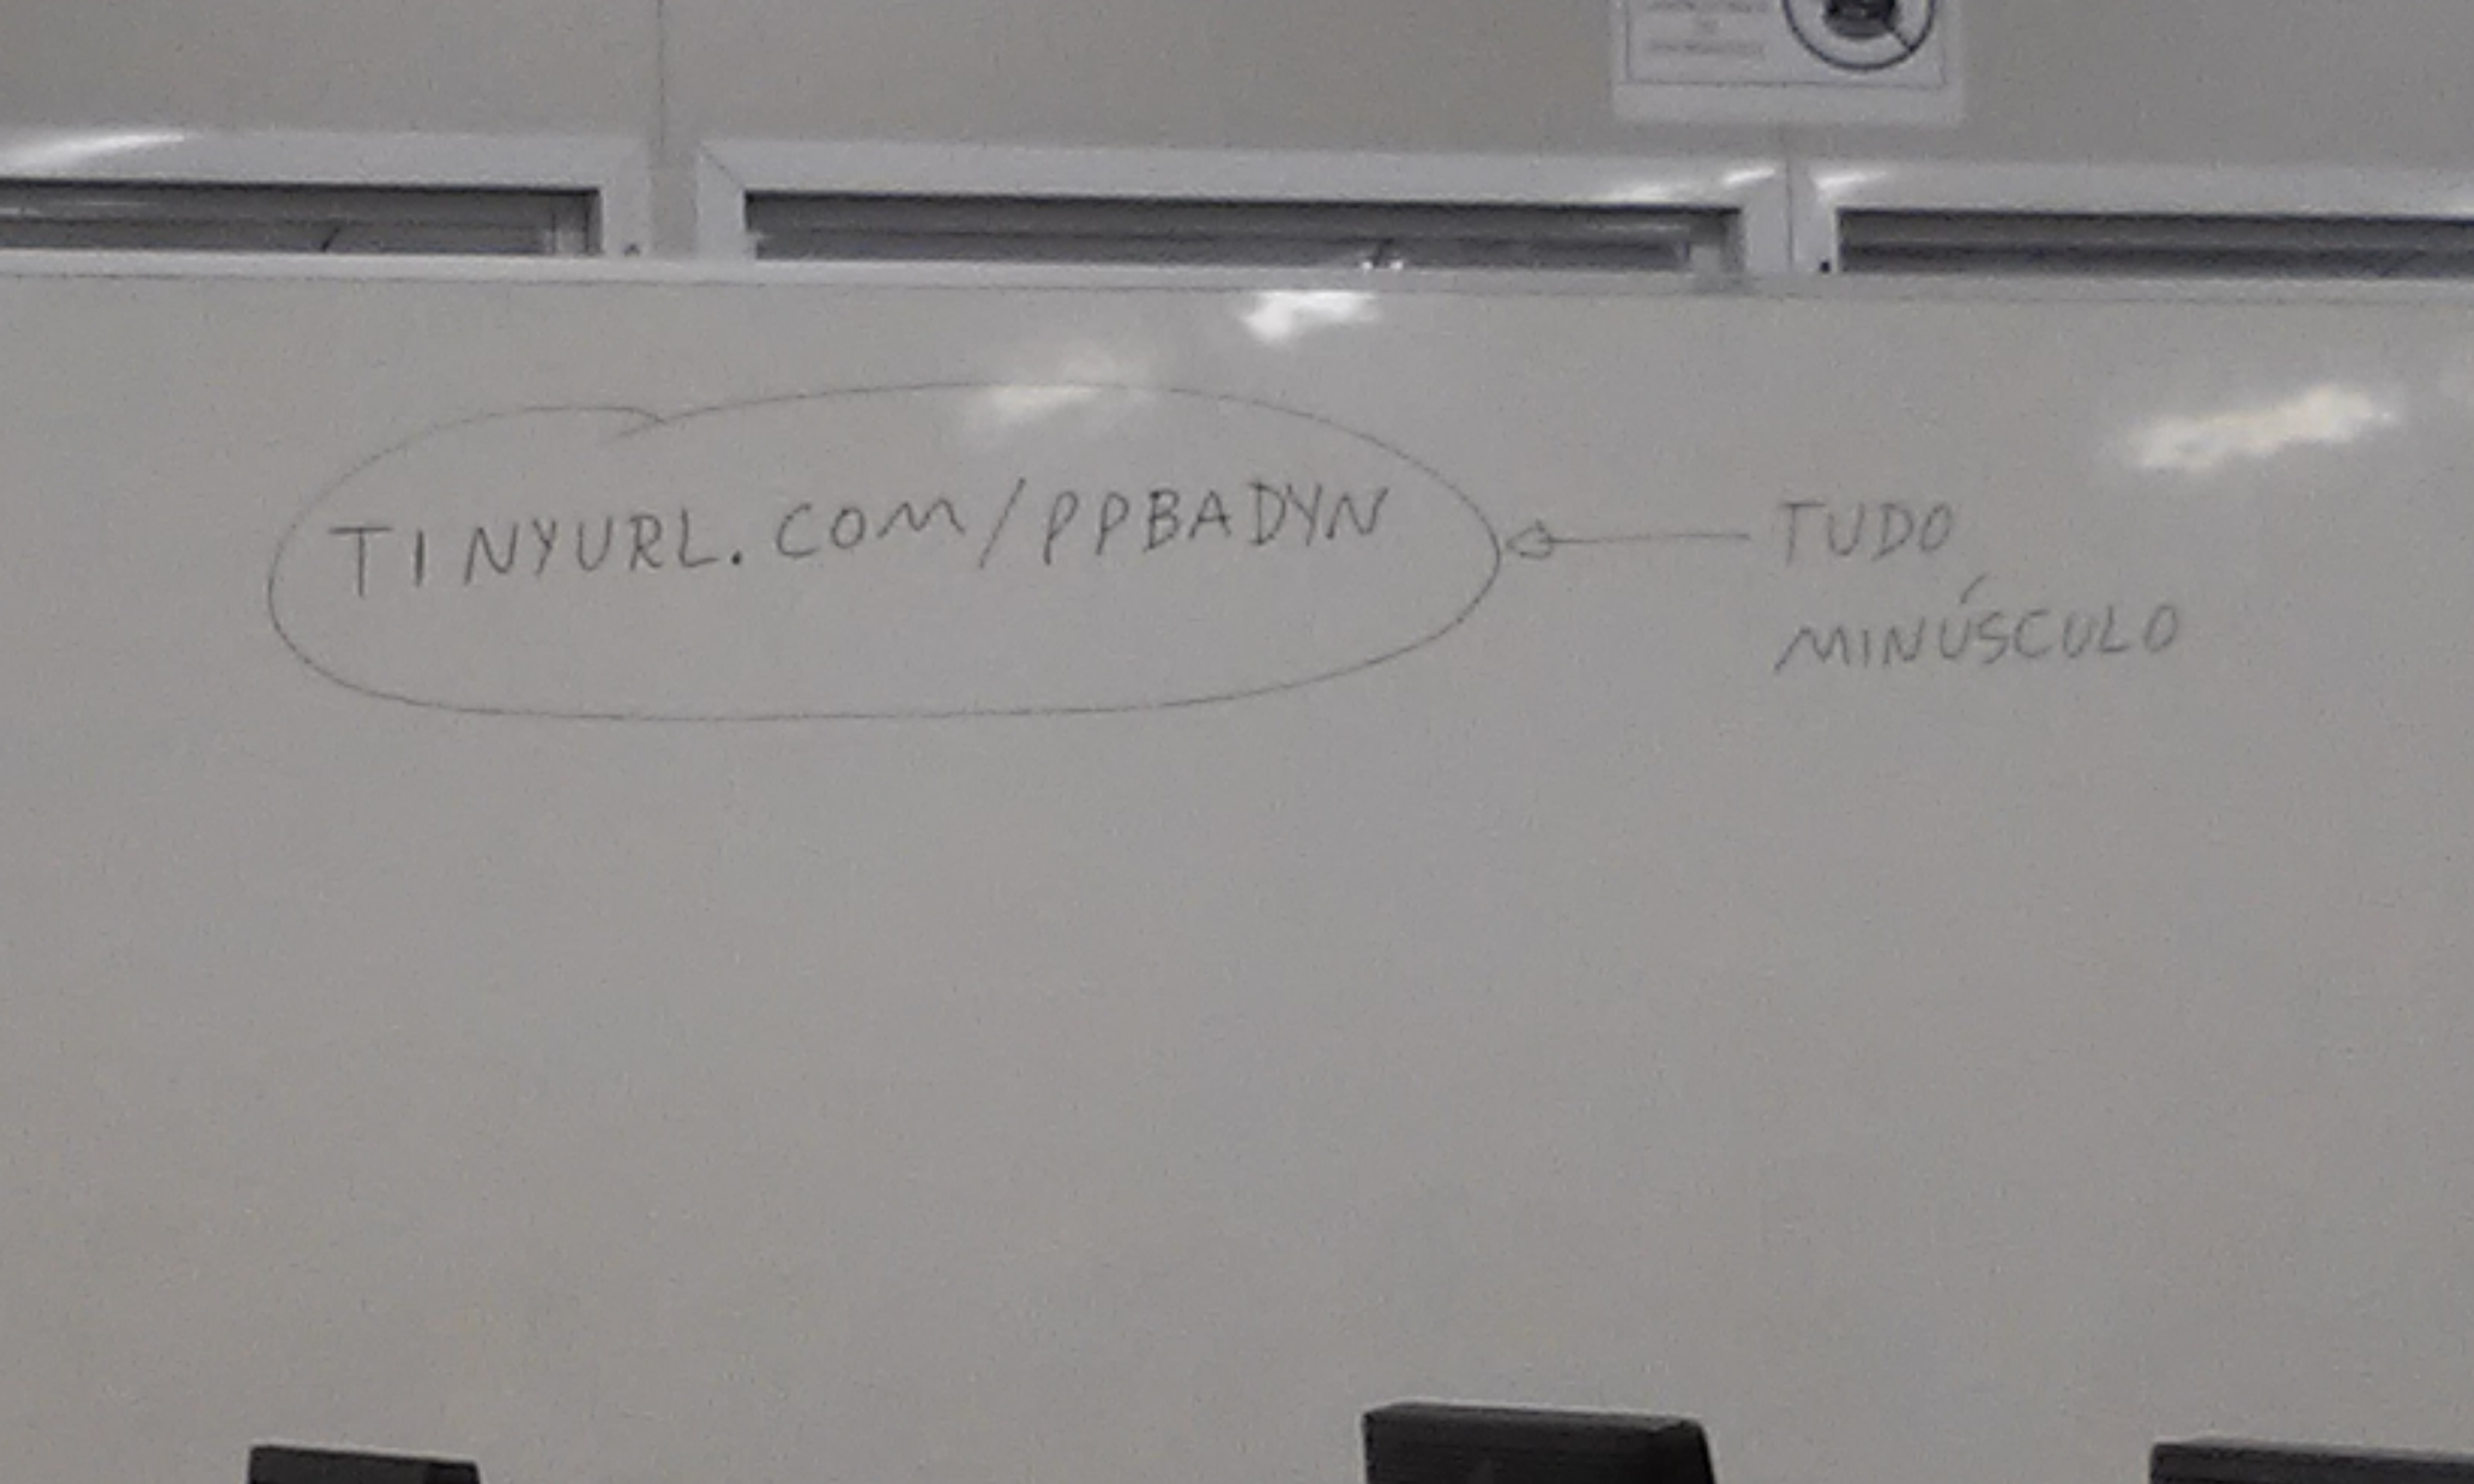 TINYURL.COM/PPBADYN
TUDO
MINÚSCULO